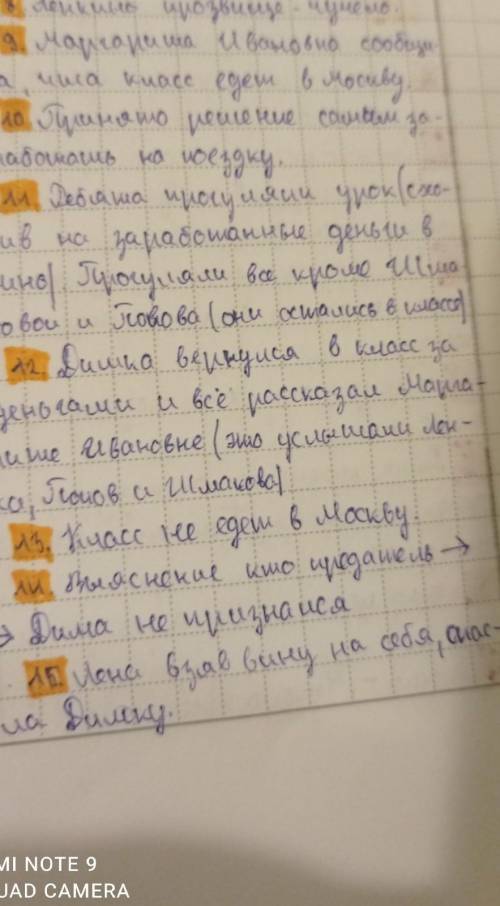 8. Ленкино прозвище - чучело.
9. Маргарита Ивановна сообщи-
а, что класс едет в Москву.
10. Принято решение самим за-
работать на поездку.
11. Ребята прогуляли урок (схо-
ив на заработанные деньги в
кино) Прогуляли все кроме Шма-
овой и Попова (они остались в классе)
12. Димка вернулся в класс за
деньгами и всё рассказал Марга-
рите Ивановне (это услышали Лен-
ка, Попов и Шмакова)
13. Класс не едет в Москву.
14. Выяснение кто предатель →
→ Дима не признался
15. Лена взяв вину на себя, спас-
ла Димку.
MI NOTE 9
QUAD CAMERA